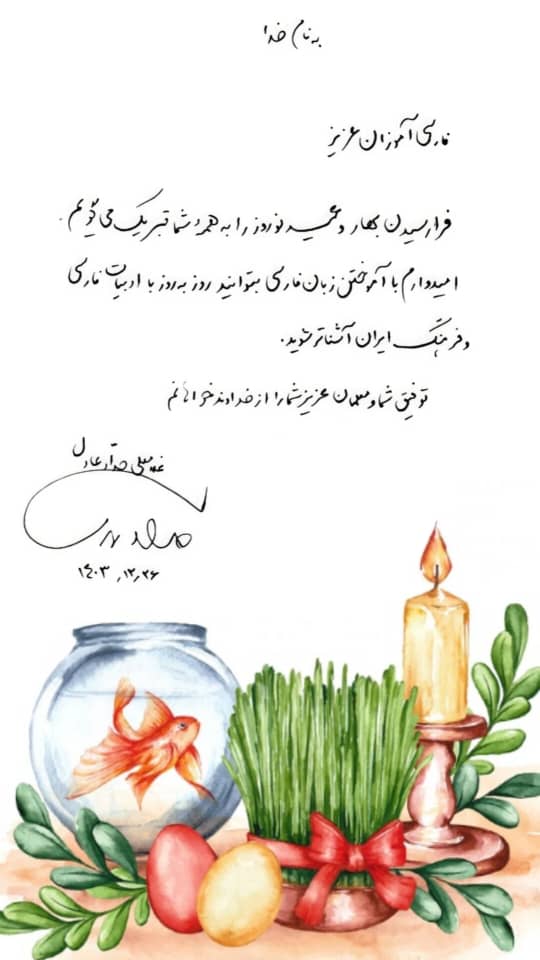 به نام خدا
فارسی‌آموزان عزیز
فرا رسیدن بهار و عید نوروز را به همهٔ شما تبریک می‌گویم.
امیدوارم با آموختن زبان فارسی بتوانید روز به روز با ادبیات فارسی
و فرهنگ ایران آشناتر شوید.
توفیق شما و معلمان عزیز شما را از خداوند خواهانم
غلامعلی حدّاد عادل
۱۴۰۳٫۱۲٫۲۶